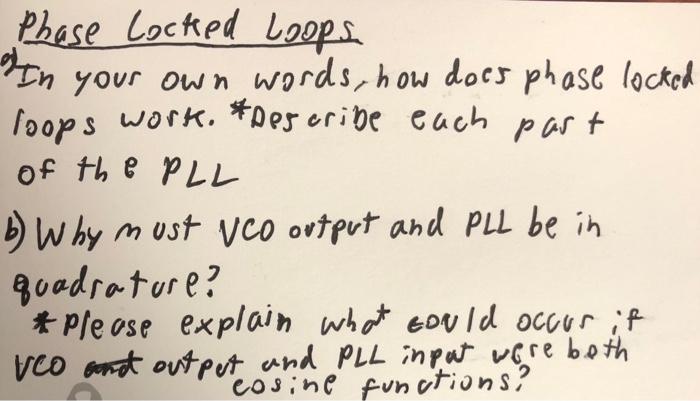 Phase Locked Loops
a) In your own words, how does phase locked
loops work. *Describe each part
of the PLL
b) Why must VCO output and PLL be in
quadrature?
* Please explain what could occur if
VCO output and PLL input were both
cosine functions?